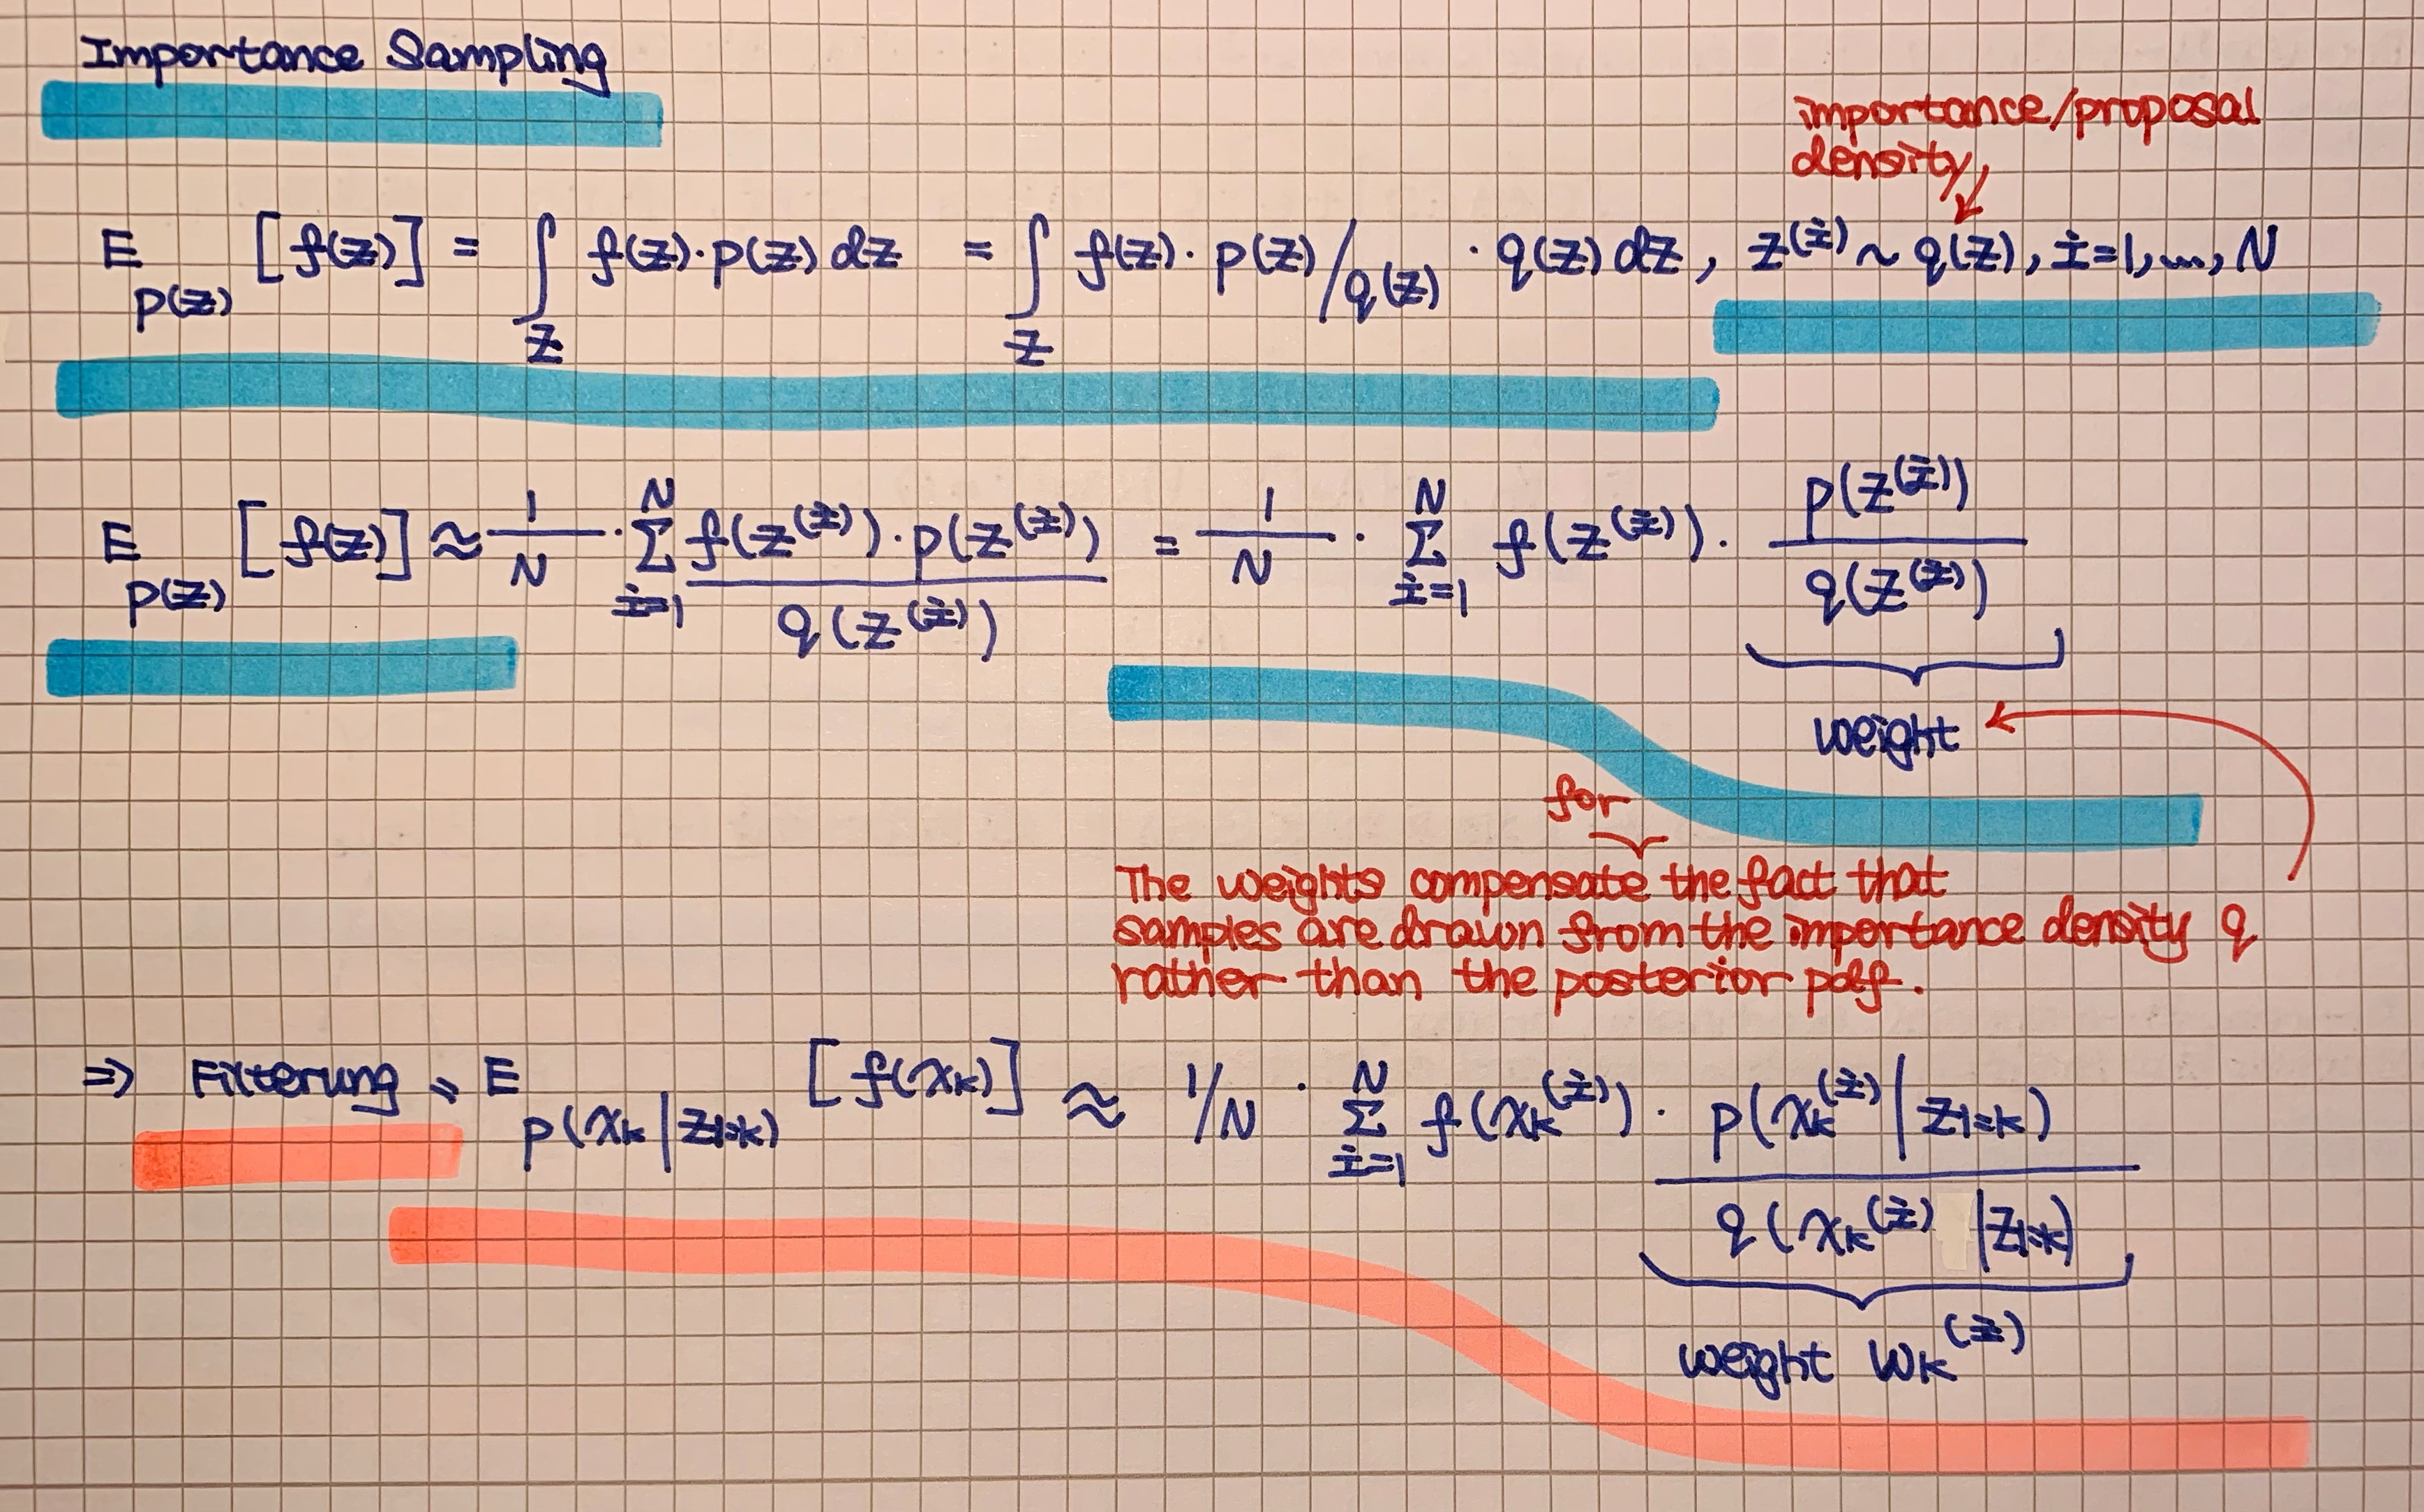 Importance Sampling
importance/proposal
density
E_{p(z)} [f(z)] = ∫_Z f(z)·p(z) dz = ∫_Z f(z)·p(z)/q(z) · q(z) dz, z^{(i)} ~ q(z), i=1,...,N
E_{p(z)} [f(z)] ≈ \frac{1}{N} · Σ_{i=1}^{N} \frac{f(z^{(i)})·p(z^{(i)})}{q(z^{(i)})} = \frac{1}{N} · Σ_{i=1}^{N} f(z^{(i)}) · \frac{p(z^{(i)})}{q(z^{(i)})}
weight
for
The weights compensate the fact that
samples are drawn from the importance density q
rather than the posterior pdf.
⇒ Filterung, E_{p(x_k|z_{1:k})} [f(x_k)] ≈ 1/N · Σ_{i=1}^{N} f(x_k^{(i)}) · \frac{p(x_k^{(i)}|z_{1:k})}{q(x_k^{(i)}|z_{1:k})}
weight w_k^{(i)}